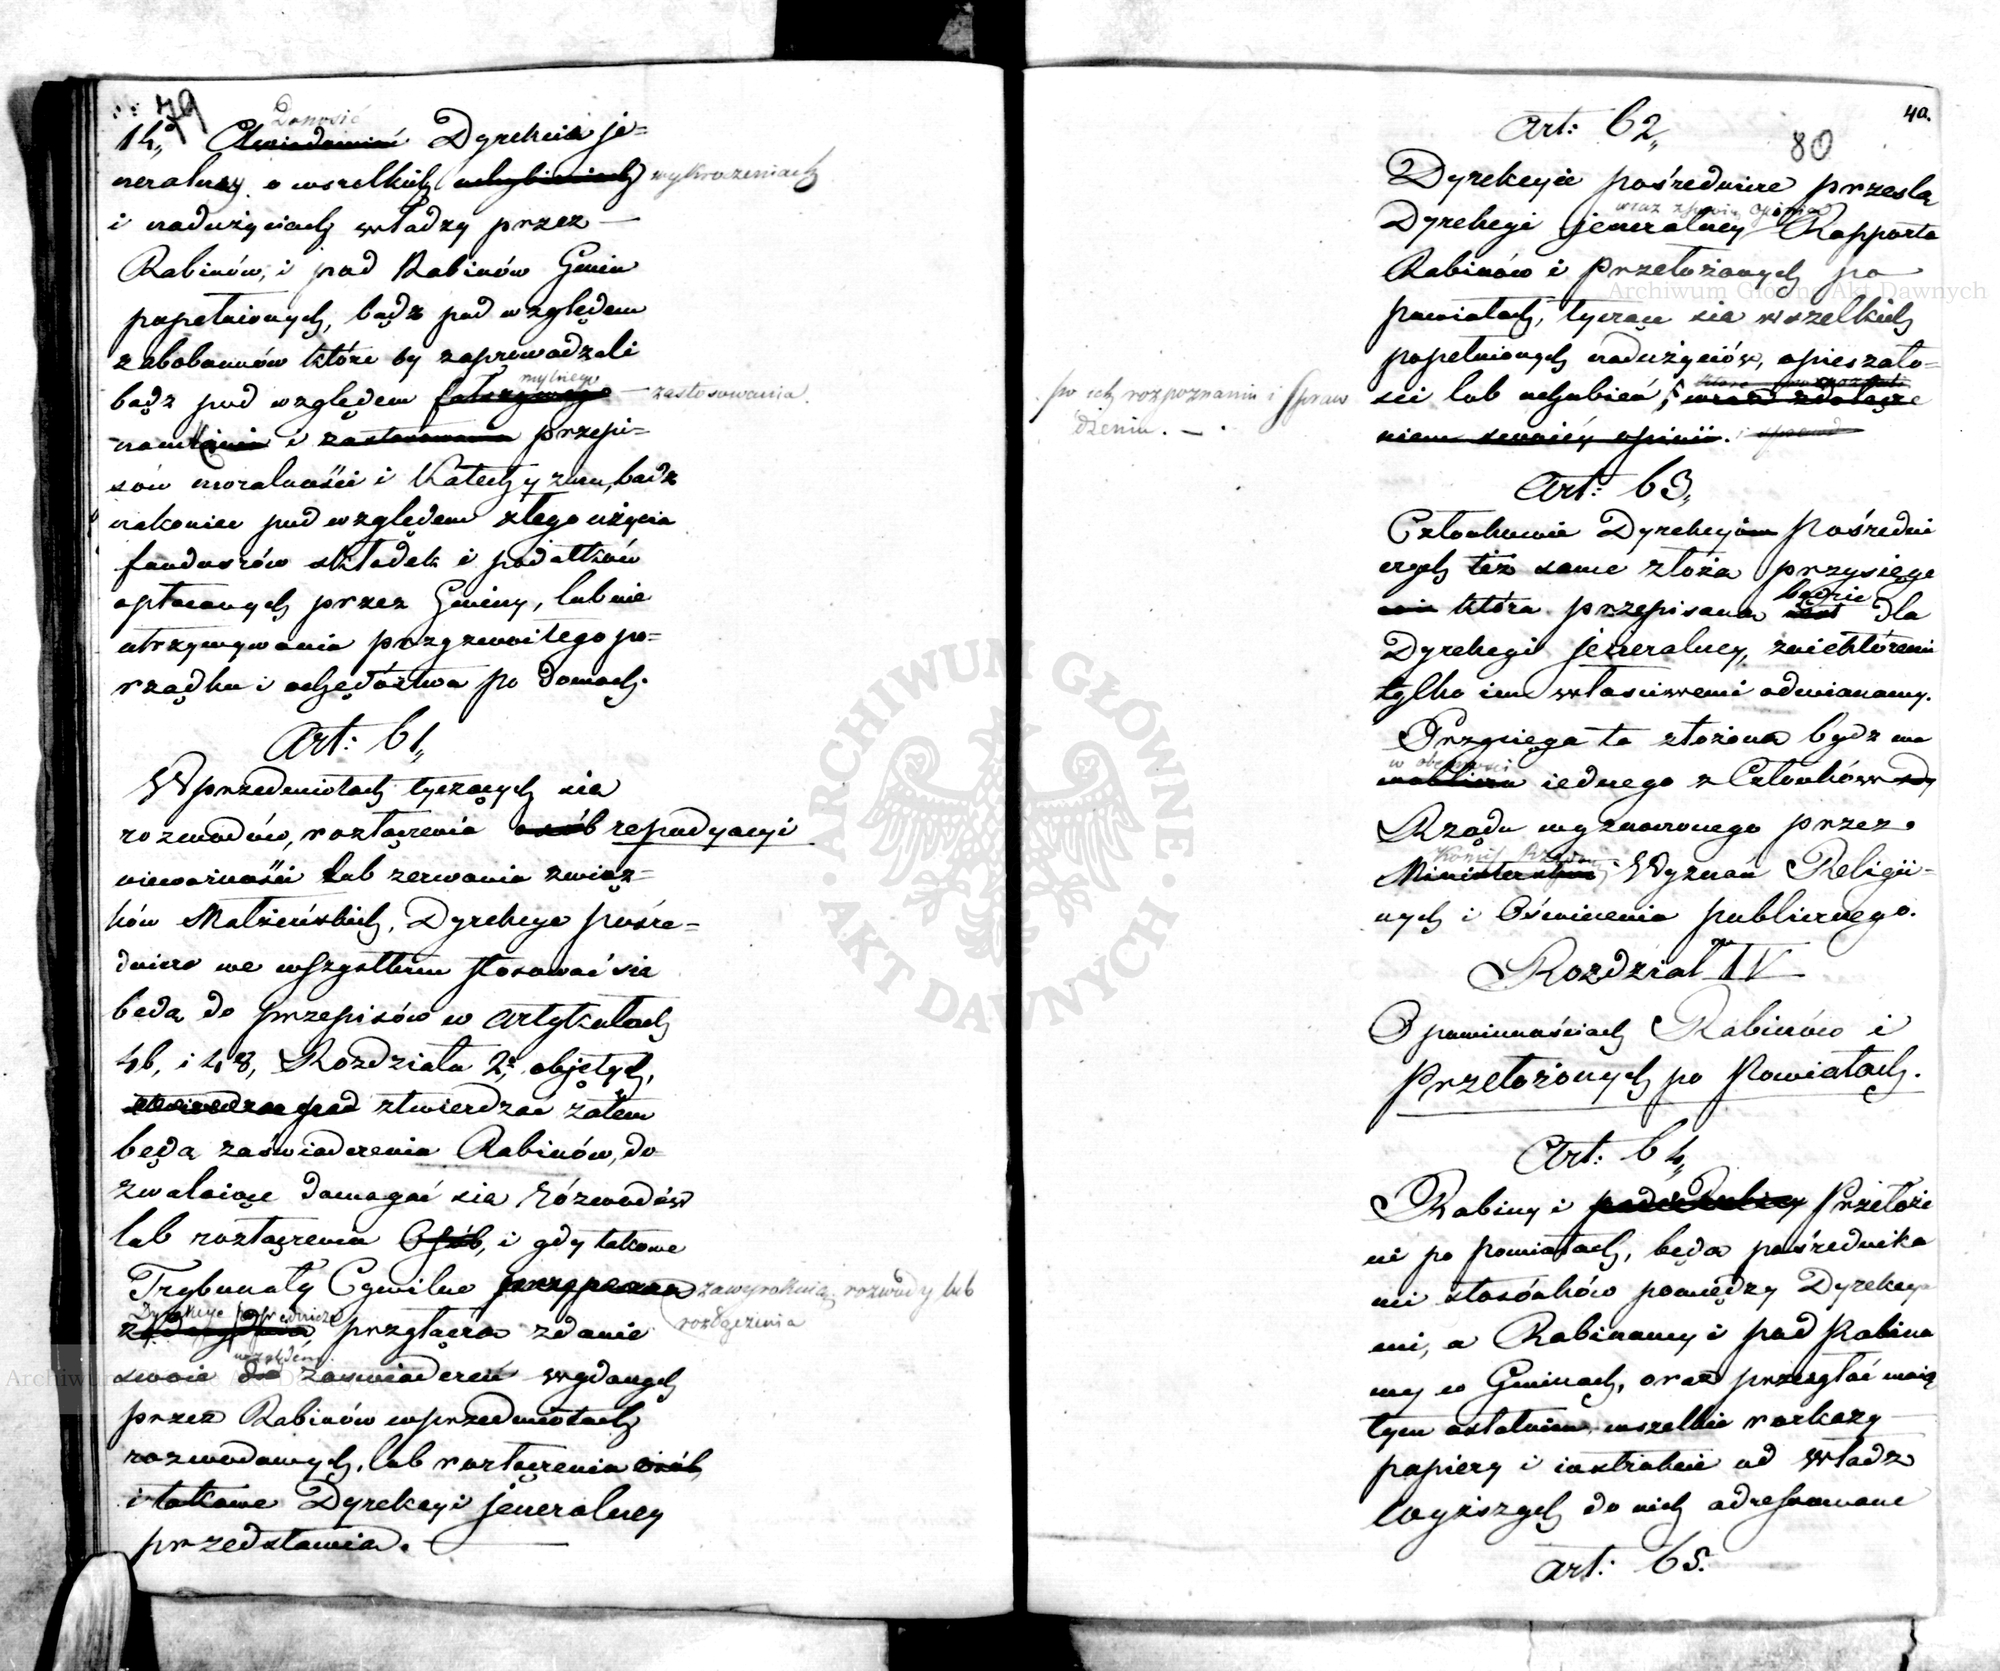 79
Donosić
14,, Zawiadamiać Dyrekcia je=
neralney o wszelkich uchybieniach wykroczeniach
i nadużyciach władzy przez —
Rabinów, i pod Rabinów Gmin
popełnionych, bądz pod względem
zabobonnów które by zaprowadzali
mylnego
bądz pod względem fałszywego — zastosowania
i zastosowania przepi=
sów moralności i Katechyzmu, badz
nakoniec pod względem złego użycia
funduszów składek i podatków
opłacanych przez Gminy, lub nie
utrzymywania przyzwoitego po=
rządku i ochędóztwa po domach.
Art: 61,,
W przedmiotach tyczących sia
rozwodów, rozłączenia osób repudyacyi
nieważności lub zerwania związ=
ków Małżeńskich, Dyrekcye pośre=
dnicze we wszystkim stosować sia
będą do przepisów w Artykułach
46, i 48, Rozdziału 2º, objętych,
ztwierdzać zatem
będą zaświadczenia Rabinów, do=
zwalaiące domagać sia rózwodów
lub rozłączenia Osób, i gdy takowe
Trybunały Cywilne zawyrokuią rozwody lub
rozłączenia
Dyrekcye pośrednicze
przyłącza zdanie
względem
swoie do zaświadczeń wydanych
przez Rabinów w przedmiotach
rozwodowych, lub rozłączenia osób,
i takowe Dyrekcyi jeneralney
przedstawia. —
40.
80
Art: 62,,
Dyrekcyie pośrednicze przesla
wraz z swoią opinią
Dyrekcyi jeneralney Rapporta
Rabinów i Przełożonych po
powiatach, tyczące sia wszelkich
popełnionych nadużyciów, opieszało=
ści lub uchybień, wraz z dołącze
po ich rozpoznaniu i spraw
dzeniu. —.
niem swoiéy opinii.
Art: 63,,
Członkowie Dyrekcyiów Pośredni
czych też same złoża przysięge
która przepisana jest będzie dla
Dyrekcyi jeneralney, z niektóremi
tylko im właściwemi odmianamy.
Przysięga ta złożona bydz ma
w obecności
iednego z Członków
Rządu wyznaczonego przez
Komis Rządow
Ministerstwo Wyznań Religii=
nych i Oświecenia publicznego.
Rozdział IV
O powinnościach Rabinów i
Przełożonych po Powiatach.
Art: 64,,
Rabiny i Przełoże
ni po powiatach, będa pośrednika
mi stosónków pomiędzy Dyrekcya
mi, a Rabinamy i pod Rabina
my w Gminach, oraz przesyłać maią
tym ostatnim, wszelkie rozkazy
papiery i instrukcie od Władz
wyższych do nich adressowane
Art: 65.
Archiwum Główne Akt Dawnych
ARCHIWUM GŁÓWNE · AKT DAWNYCH ·